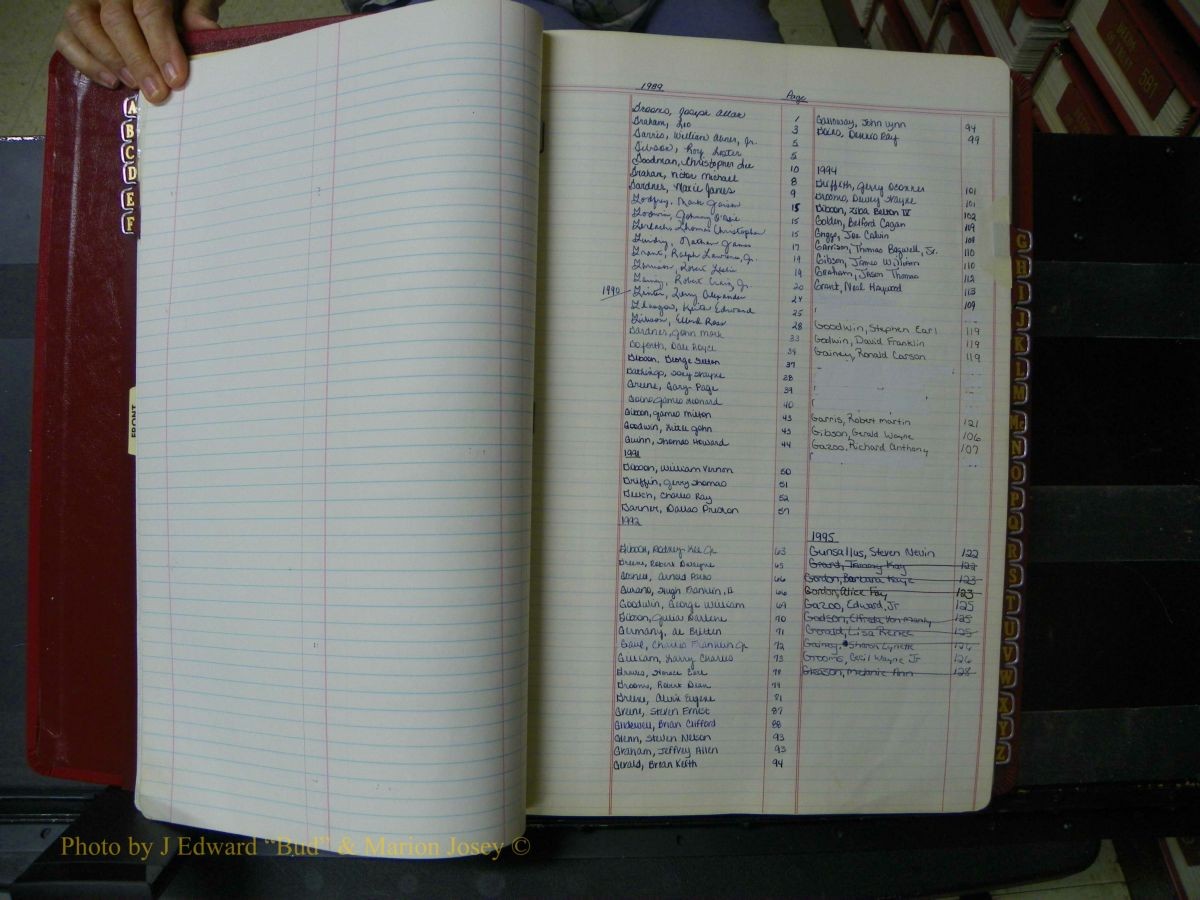 A
B
C
D
E
F
FRONT
1989
Page
Grooms, Joseph Allan 1
Graham, Leo 3
Garris, William Abner, Jr. 5
Gibson, Roy Lester 5
Goodman, Christopher Lee 10
Graham, Victor Michael 8
Gardner, Maxie James 9
Godfrey, Mark 15
Godwin, Johnny 15
Gerlach, Thomas Christopher 15
Gundry, Mathew James 17
Grant, Ralph Lawrence, Jr. 19
Robert Leslie 19
Robert Craig, Jr. 20
1990
Terry Alexander 24
Keith Edward 25
Gibson, Ross 28
Gardner, John Mark 33
Goforth, Dale Royce 34
Gibson, George 37
Gathings, Joey Wayne 38
Greene, Gary Page 39
James Leonard 40
Gibson, James Milton 43
Goodwin, John 43
Guinn, Thomas Howard 44
1991
Gibson, William Vernon 50
Griffin, Jerry Thomas 51
Charles Ray 52
Garner, Dallas Preston 57
1992
Gibson, Rodney Lee Jr 63
Greene, Robert Dwayne 65
Arnold 66
Hugh Franklin, II 66
Goodwin, George William 69
Gibson, Julia Darlene 70
Germany, 71
Charles Franklin Jr 72
Gilliam, Larry Charles 73
Horace Earl 78
Grooms, Robert Dean 79
Greene, Alvin Eugene 81
Greene, Steven Ernest 87
Glidewell, Brian Clifford 88
Glenn, Steven Nelson 93
Graham, Jeffrey Allen 93
Gerald, Brian Keith 94
Galloway, John Lynn 94
Dennis Ray 99
1994
Griffith, Jerry 101
Grooms, Dewey Wayne 101
Gibson, Ziba Belton IV 102
Golden, Belford Cagan 109
Griggs, Joe Calvin 108
Garrison, Thomas Bagwell, Jr. 110
Gibson, James William 110
Graham, Jason Thomas 112
Grant, Neal Haywood 113
109
Goodwin, Stephen Earl 119
Godwin, David Franklin 119
Gainey, Ronald Carson 119
Garris, Robert Martin 121
Gibson, Gerald Wayne 106
Gazoo, Richard Anthony 107
1995
Gunsallus, Steven Nevin 122
Grant, Tammy Kay 122
Gordon, Barbara Kaye 123
Gordon, Alice Fay 123
Gazoo, Edward, Jr 125
Godson, Elfreda Von 125
Gerald, Lisa Renee 125
Gainey, Sharon Lynette 126
Grooms, Cecil Wayne Jr 126
Gleason, Melanie Ann 128
G
H
I
J
K
L
M
Mc
N
O
P
Q
R
S
T
U
V
W
X
Y
Z
581
Photo by J Edward "Bud" & Marion Josey ©